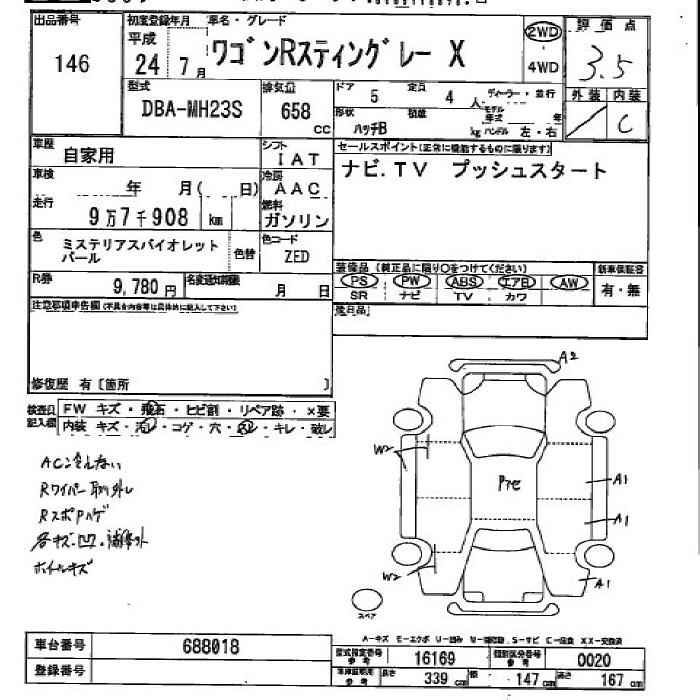 出品番号
146
初度登録年月
平成
24年 7月
車名・グレード
ワゴンRスティングレー X
2WD
4WD
評価点
3.5
外装 内装
C
型式
DBA-MH23S
排気量
658
cc
ドア
5
定員
4
人
ディーラー・並行
モデル
年式 年
形状
ハッチB
積載
kg
ハンドル 左・右
車歴
自家用
シフト
IAT
車検
年 月( 日)
冷房
AAC
走行
9万7千908 km
燃料
ガソリン
色
ミステリアスバイオレット
パール
色替
色コード
ZED
R券
9,780円
名変通知期限
月 日
セールスポイント(正常に機能するものに限ります)
ナビ.TV プッシュスタート
装備品(純正品に限り○をつけてください)
PS PW ABS エアB AW
SR ナビ TV カワ
新車保証書
有・無
後日品
注意事項申告欄(不具合内容等は具体的に記入して下さい)
修復歴 有〔箇所 〕
検査員
記入欄
FW キズ・飛石・ヒビ割・リペア跡・×要
内装 キズ・汚レ・コゲ・穴・スレ・キレ・破レ
ACン冷えない
Rワイパー取り外し
RスポPハゲ
各キズ・凹・補修外
ホイールキズ
A2
W2
Pアセ
A1
A1
W2
A1
スペア
A-キズ E-エクボ U-凹み W-補修跡 S-サビ C-腐食 XX-交換済
車台番号
688018
登録番号
型式指定番号
参考
16169
類別区分番号
参考
0020
車庫証明用
参考
長さ
339 cm
幅
147 cm
高さ
167 cm